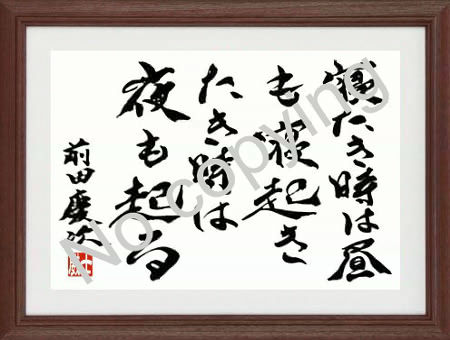 寝たき時は昼
も寝起き
たき時は
夜も起る
前田慶次
No copying